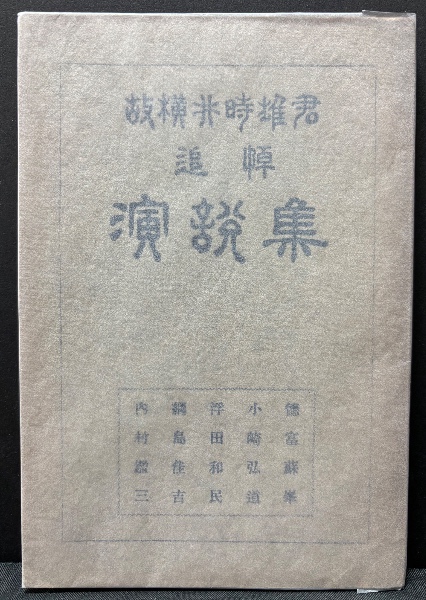 故橫井時雄君
追悼
演說集
德富蘇峯
小崎弘道
浮田和民
綱島佳吉
內村鑑三